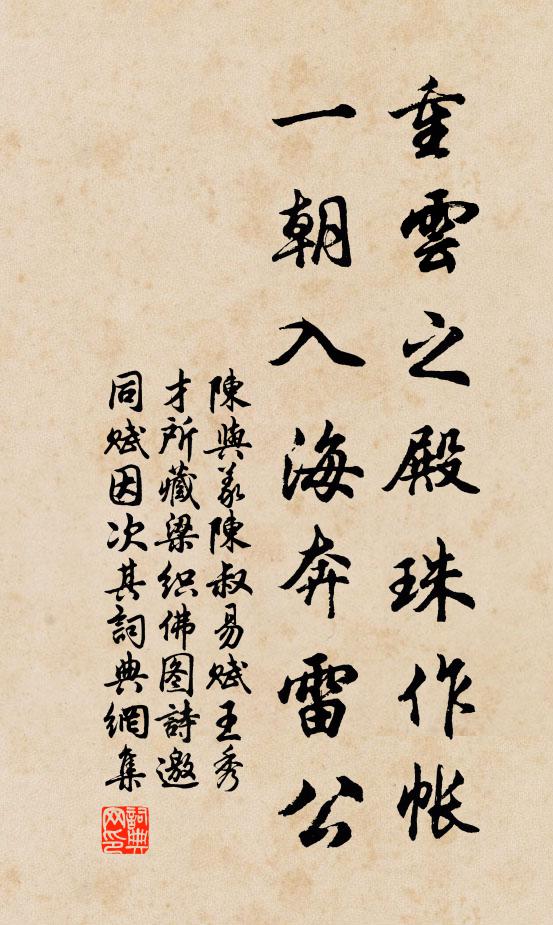 重雲之殿珠作帐
一朝入海奔雷公
陳與义陳叔易赋王秀
才所藏梁织佛图詩邀
同赋因次其詞典網集
詞典网印